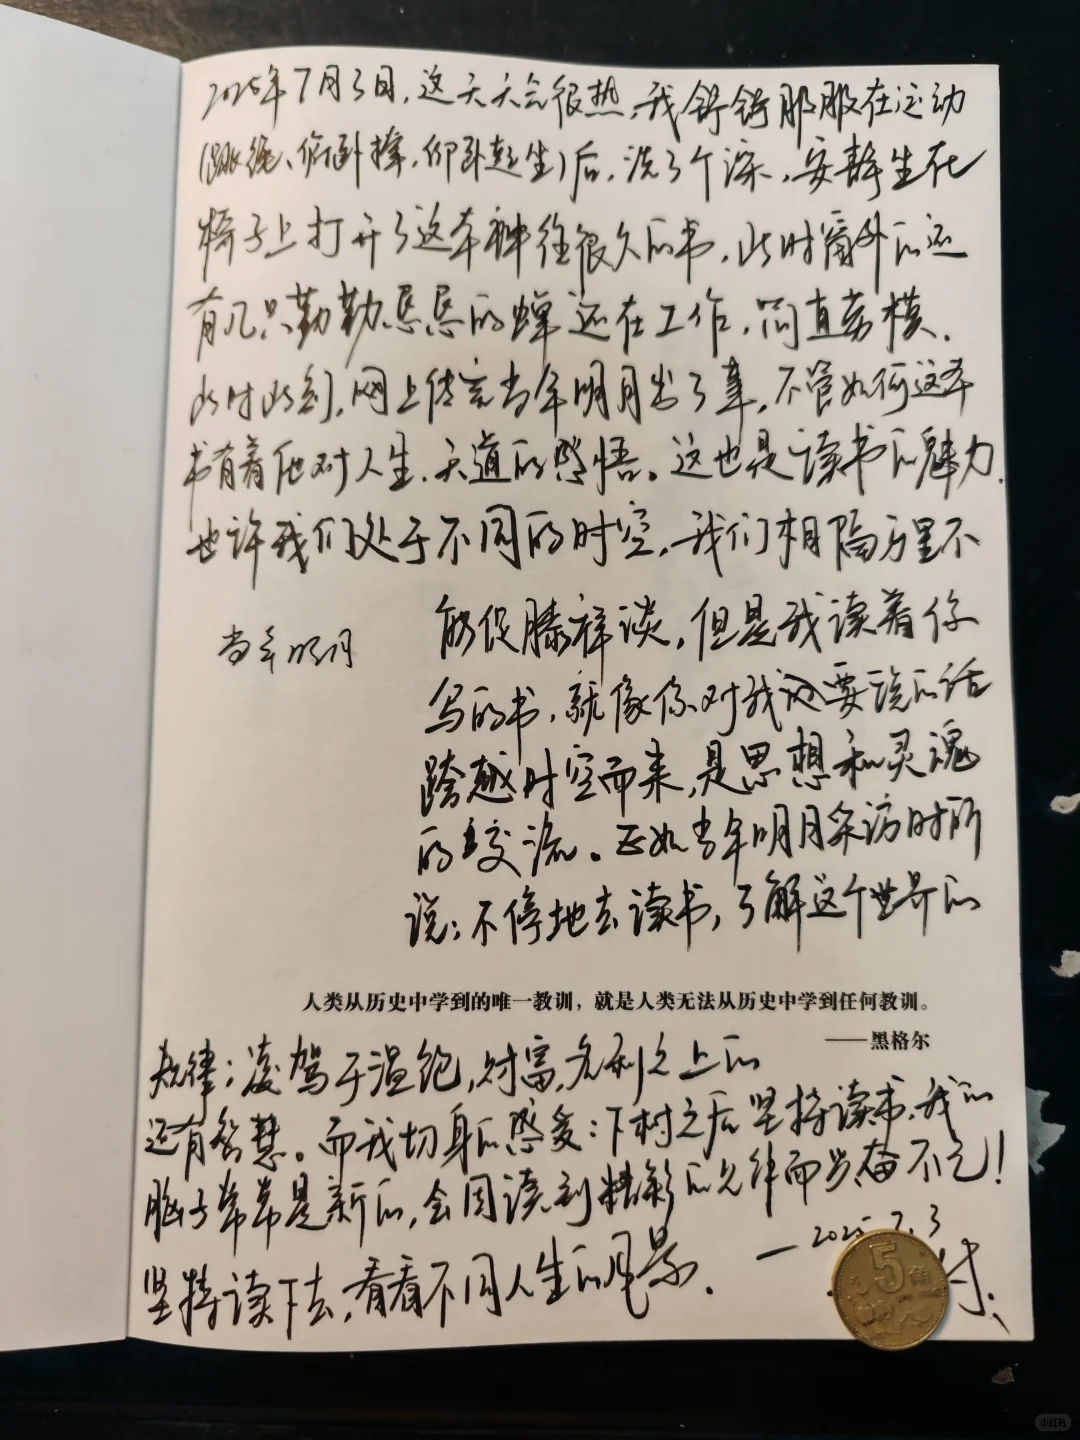 2025年7月3日，这天天气很热，我舒舒服服在运动
(跳绳、俯卧撑，仰卧起坐)后，洗了个澡，安静坐在
椅子上打开了这本神往很久的书，此时窗外的还
有几只勤勤恳恳的蝉还在工作，简直劳模．
此时此刻，网上传言当年明月出了事，不管如何这本
书有着他对人生、天道的感悟。这也是读书的魅力．
也许我们处于不同的时空，我们相隔万里不
能促膝详谈，但是我读着你
当年明月
写的书，就像你对我要说的话
跨越时空而来，是思想和灵魂
的交流。正如当年明月采访时所
说：不停地去读书，了解这个世界的
人类从历史中学到的唯一教训，就是人类无法从历史中学到任何教训。
——黑格尔
规律；凌驾于温饱，财富，名利之上的
还有智慧。而我切身的感受：下村之后坚持读书，我的
脑子常常是新的，会因读到精彩的而兴奋不已！
坚持读下去，看看不同人生的风景．
— 2025.7.3
村
5角
小红书